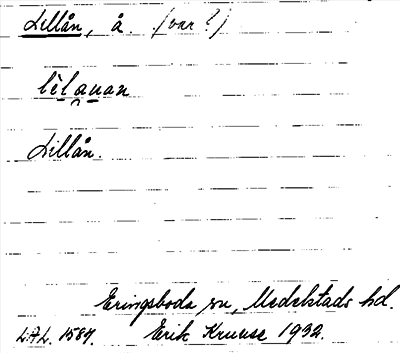 Lillån, å. (var?)
lèl auan
Lillån.
Eringsboda sn, Medelstads hd.
L.A.L. 1587. Erik Kruuse 1932.